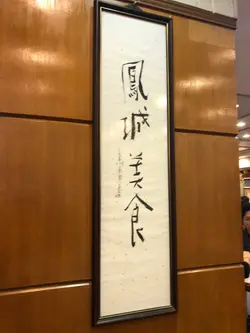 鳳城美食